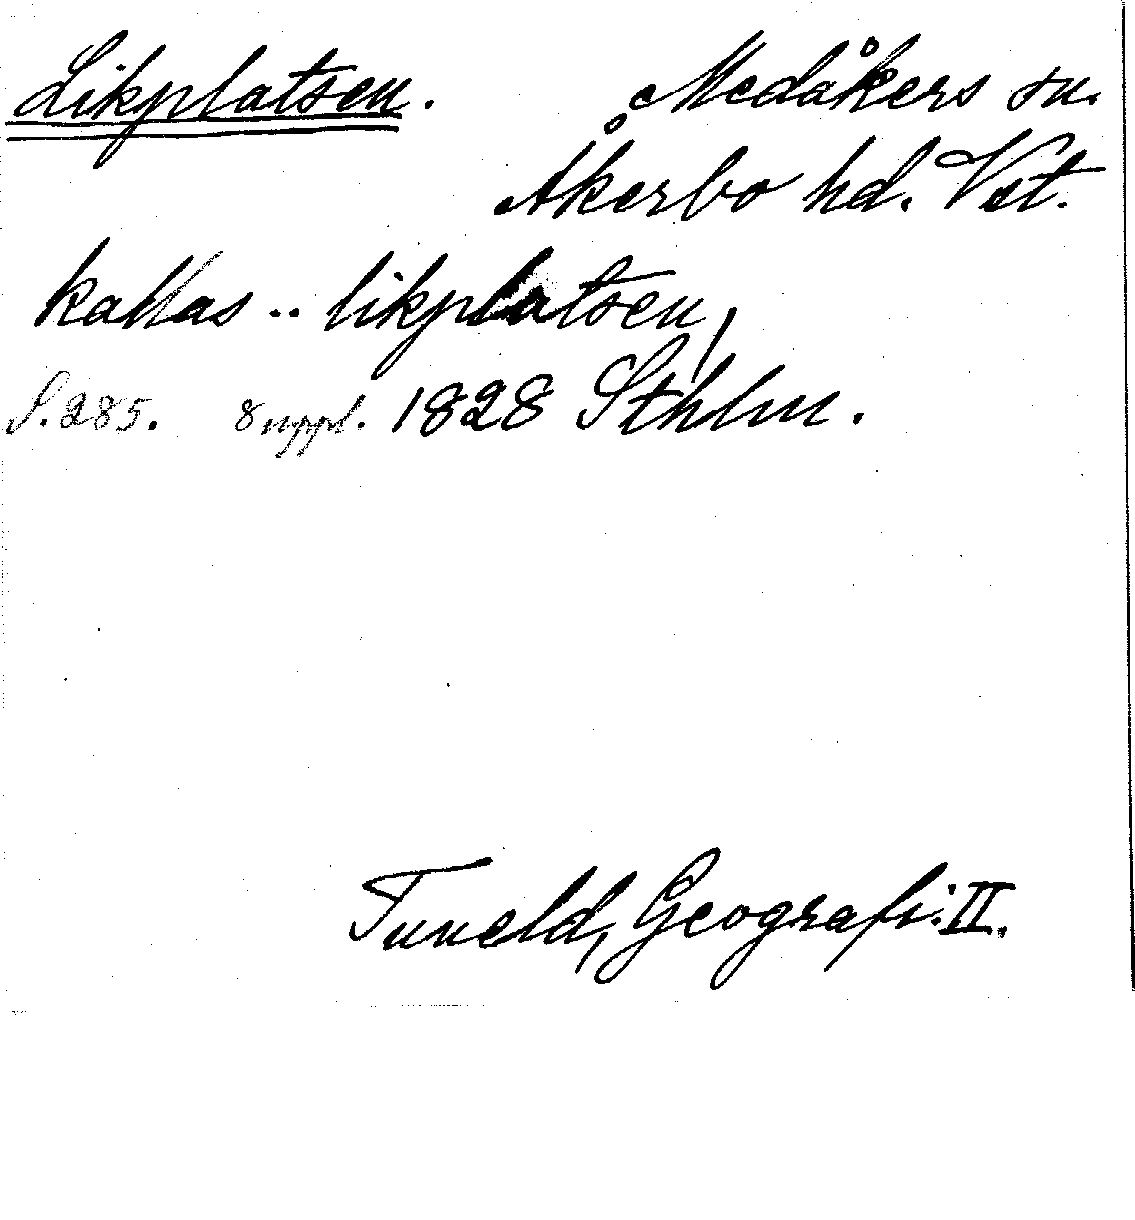 Likplatsen. Medåkers sn.
Åkerbo hd. Vst.
kallas .. likplatsen,
S. 285. 8 uppl. 1828 Sthlm.
Tuneld, Geografi: II.